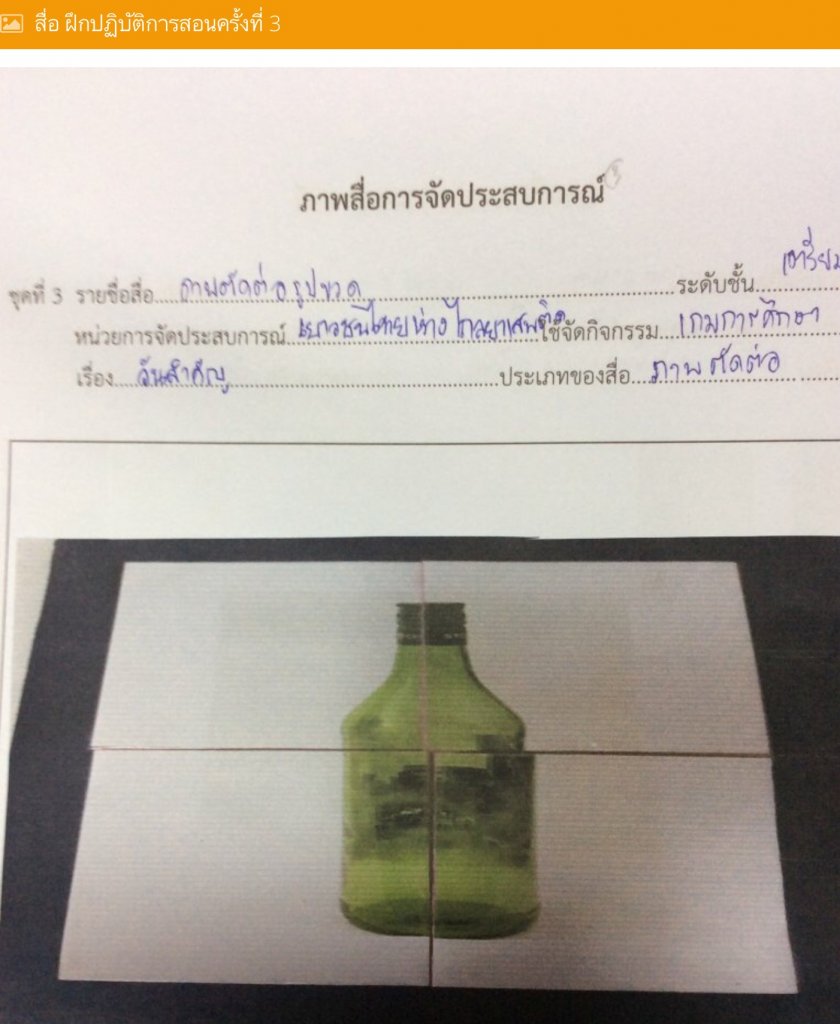 สื่อ ฝึกปฏิบัติการสอนครั้งที่ 3
ภาพสื่อการจัดประสบการณ์
ชุดที่ 3 รายชื่อสื่อ....ภาพตัดต่อรูปขวด....ระดับชั้น....เตรียม
หน่วยการจัดประสบการณ์...เยาวชนไทยห่างไกลยาเสพติด...ใช้จัดกิจกรรม....เกมการศึกษา
เรื่อง....วันสำคัญ....ประเภทของสื่อ....ภาพตัดต่อ....